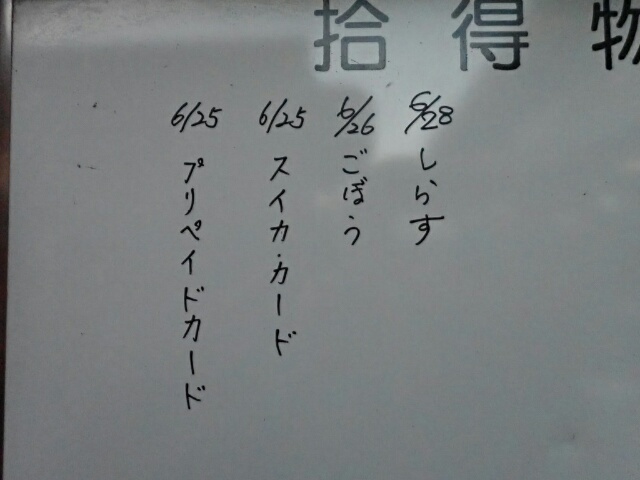 拾得物
6/28
しらす
6/26
ごぼう
6/25
スイカ・カード
6/25
プリペイドカード